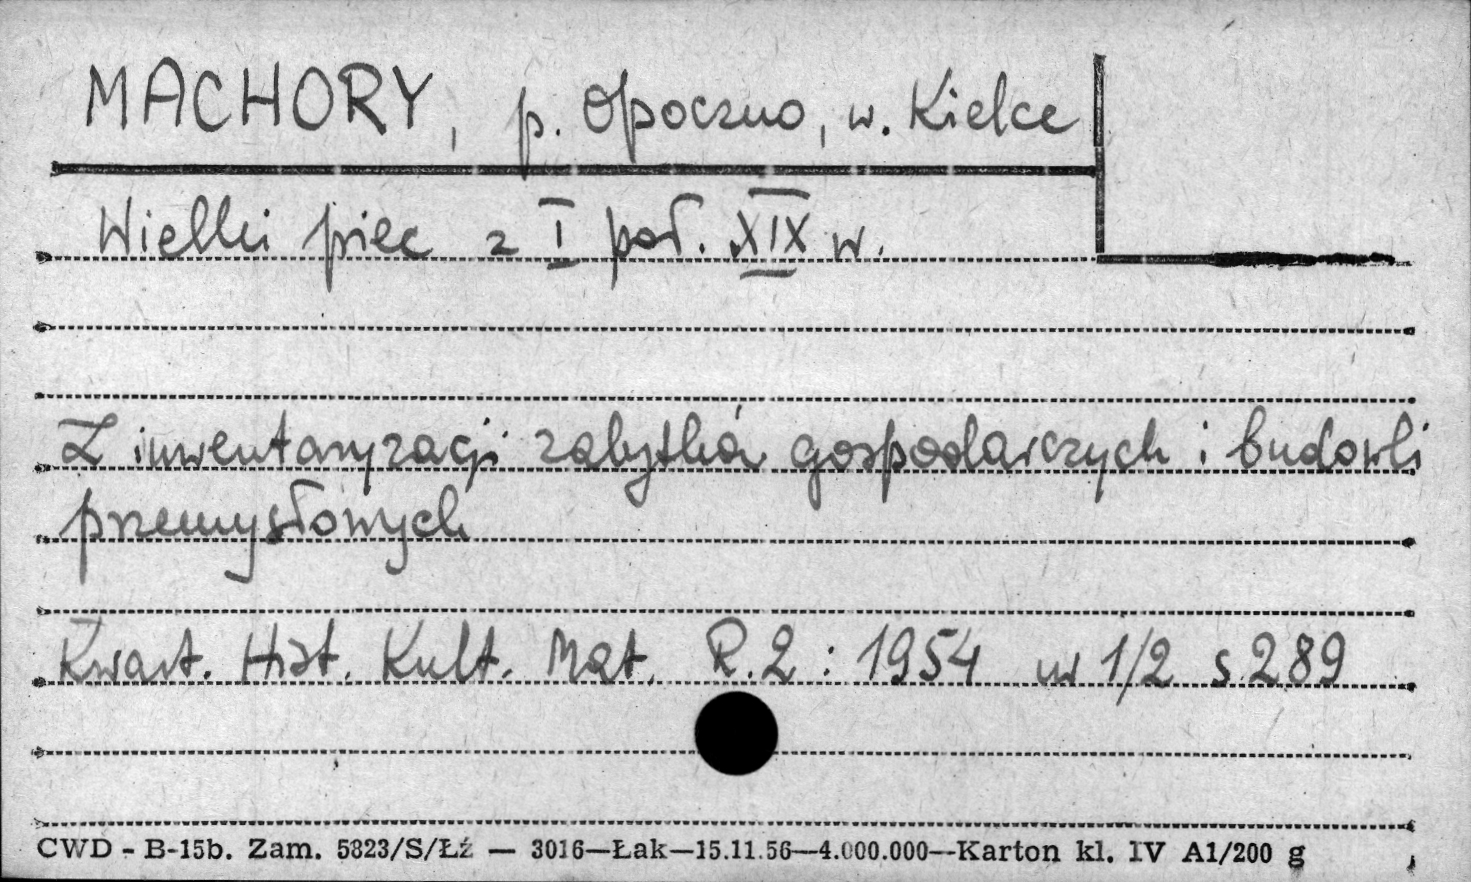 MACHORY, p. Opoczno, w. Kielce
Wielki piec z I poł. XIX w.
Z inwentaryzacji zabytków gospodarczych i budowli
przemysłowych
Kwart. Hist. Kult. Mat. R.2 : 1954 nr 1/2 s.289
CWD - B-15b. Zam. 5823/S/Łź — 3016—Łak—15.11.56—4.000.000--Karton kl. IV A1/200 g